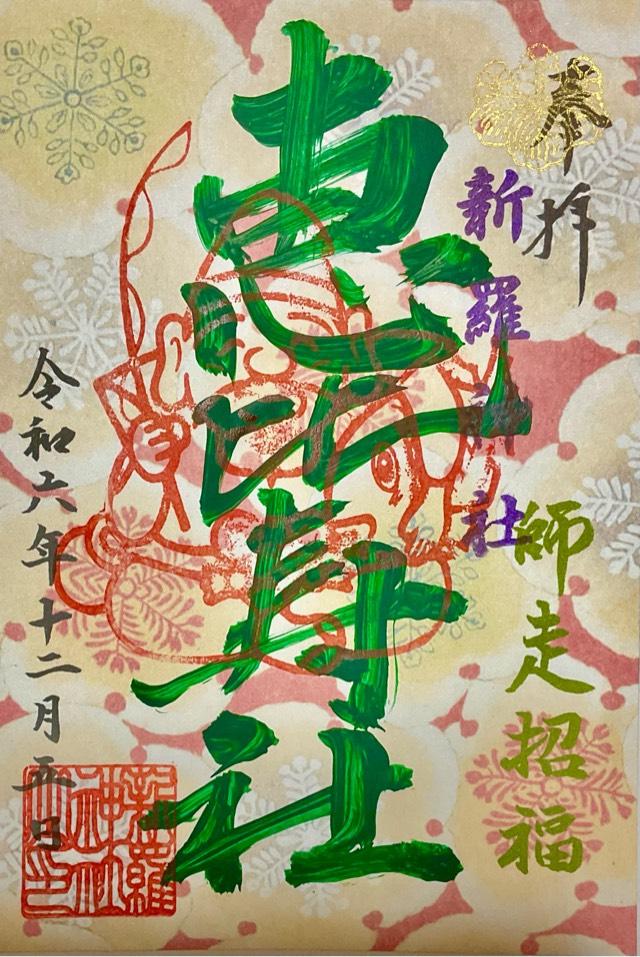 奉拝
新羅神社
師走招福
恵比寿社
令和六年十二月五日
新羅
神社
之印